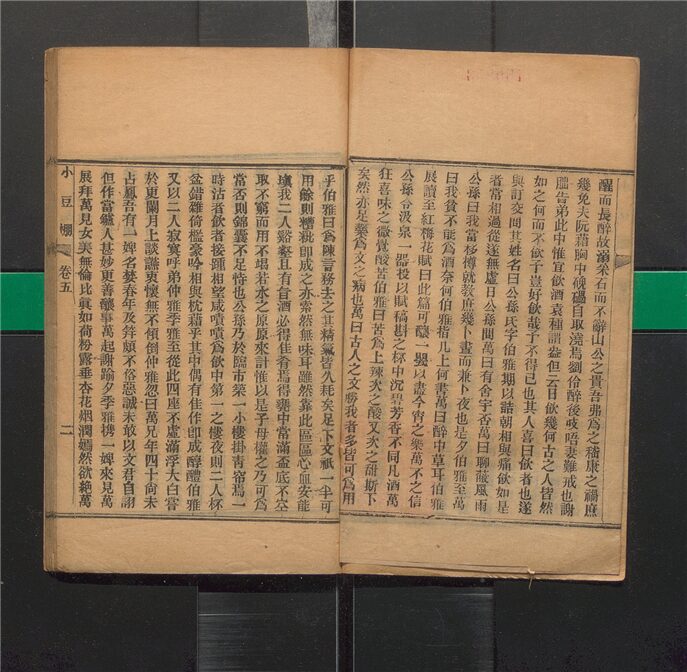 醒而長醉故溺采石而不辭山公之貴吾弗爲之嵇康之禍庶
幾免夫阮藉胸中傀儡自取澆焉劉伶醉後咳唔妻難戒也謝
醞告弟此中惟宜飲酒袁種謂盎但云日飲幾何古之人皆然
如之何而不飲子豈好飲哉予不得已也其人喜曰飲者也遂
與訂交問其姓名曰公孫氏字伯雅期以詰朝相與痛飲如是
者常相過從遂無虛日公孫問萬曰有舍宇否萬曰聊蔽風雨
公孫曰我當杉樽就教庶幾卜晝而兼卜夜也是夕伯雅至萬
曰我貧不能爲酒奈何伯雅指几上何書萬曰醉中草耳伯雅
展讀至紅梅花賦曰此篇可釀一甖以盡今宵之樂萬不之信
公孫令汲泉一器投以賦稿斟之杯中沉碧芳香不同凡酒萬
狂喜味之微覺酸苦伯雅曰苦爲上辣次之酸又次之甜斯下
矣然亦足爲文之病也萬曰古人之文勝我者多皆可爲用
乎伯雅曰爲陳言務去之其精氣皆久耗矣足下文祇一半可
用餘則糟粃卽成之亦索然無味耳雖然靠此區區心血安能
塡我二人谿壑且有旨酒必得佳肴焉得甕中常滿盃底不空
取不窮而用不竭若水之原原來計惟以是子母權之乃可爲
當否則錦囊不足恃也公孫乃於臨市築一小樓掛靑帘焉一
時沽者飲者接踵相望咸嘖嘖爲飲中第一之樓夜則二人杯
盆錯雜倚檻豪吟相與枕藉乎其中偶有佳作卽成醇醴伯雅
又以二人寂寞呼弟仲雅季雅至從此四座不虛滿浮大白嘗
於更闌月上談讌爽懷無不傾倒仲雅忽曰萬兄年四十尙未
占鳳吾有一婢名藝春年及笄頗不俗惡誠未敢以文君自詡
但作當鑪人甚妙更善釀萬起謝踰夕季雅携一婢來見萬
展拜萬見女美無倫比眞如荷粉露垂杏花烟潤嫣然欲絶萬
小豆棚
卷五
二